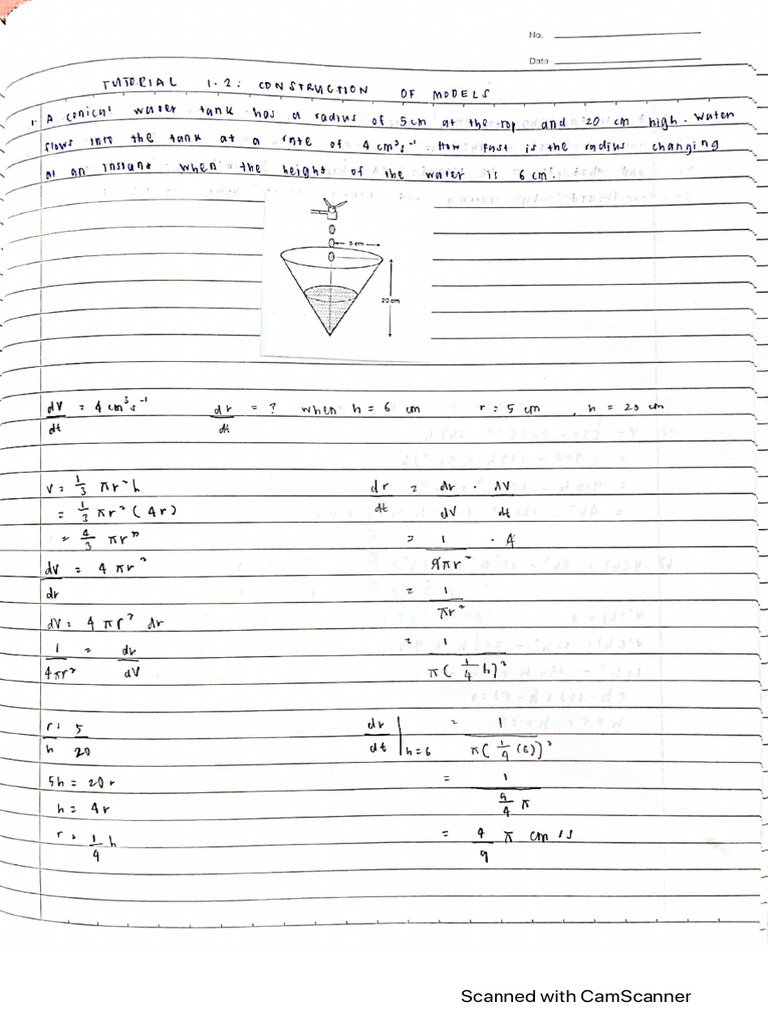 No.
Date
TUTORIAL 1.2: CONSTRUCTION OF MODELS
1. A conical water tank has a radius of 5 cm at the top and 20 cm high. Water
flows into the tank at a rate of 4 cm³s⁻¹. How fast is the radius changing
at an instant when the height of the water is 6 cm.
5 cm
20 cm
dV/dt = 4 cm³s⁻¹ dr/dt = ? when h = 6 cm r = 5 cm , h = 20 cm
V = 1/3 πr²h dr/dt = dr/dV · dV/dt
= 1/3 πr²(4r) = 1/4πr² · 4
= 4/3 πr³
dV/dr = 4πr² = 1/πr²
dV = 4πr² dr
1/4πr² = dr/dV = 1/π(1/4 h)²
r/h = 5/20 dr/dt |h=6 = 1/π(1/4 (6))²
5h = 20r = 1/(9/4 π)
h = 4r
r = 1/4 h = 4/9 π cm/s
Scanned with CamScanner